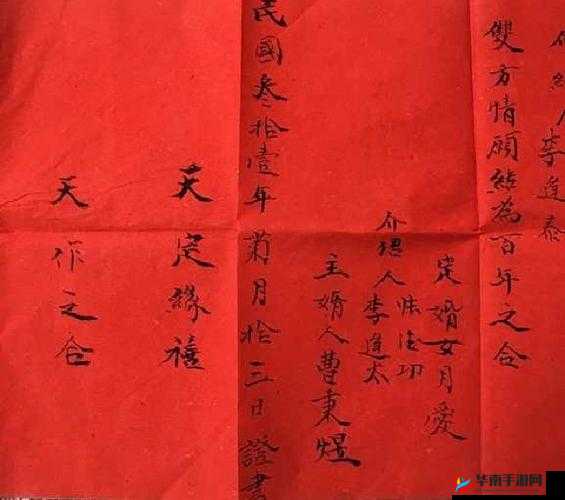 介紹人李逢泰
雙方情願結為百年之合
定婚女月愛
介紹人
李逢太
主婚人曹秉煜
民國叁拾壹年菊月拾三日證書
天定緣禧
天作之合
华南手游网